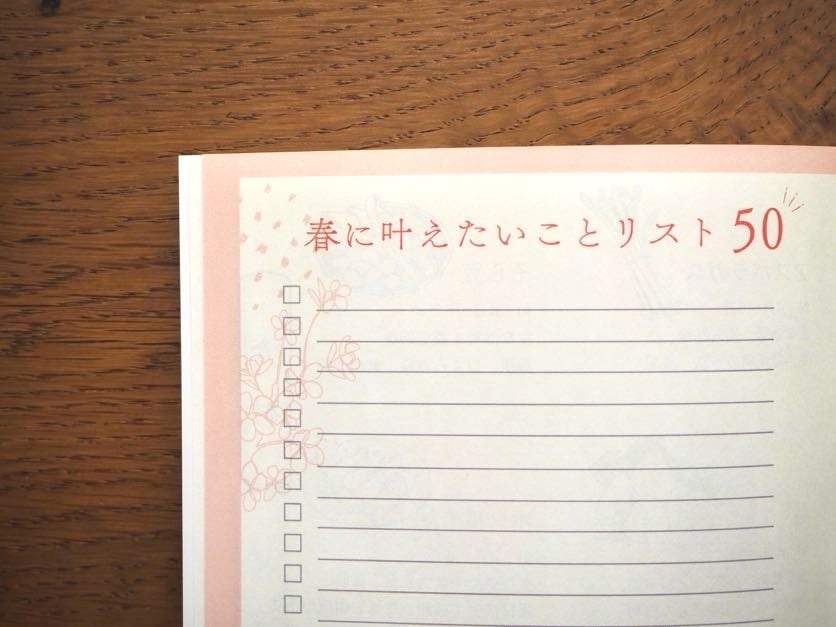 春に叶えたいことリスト50